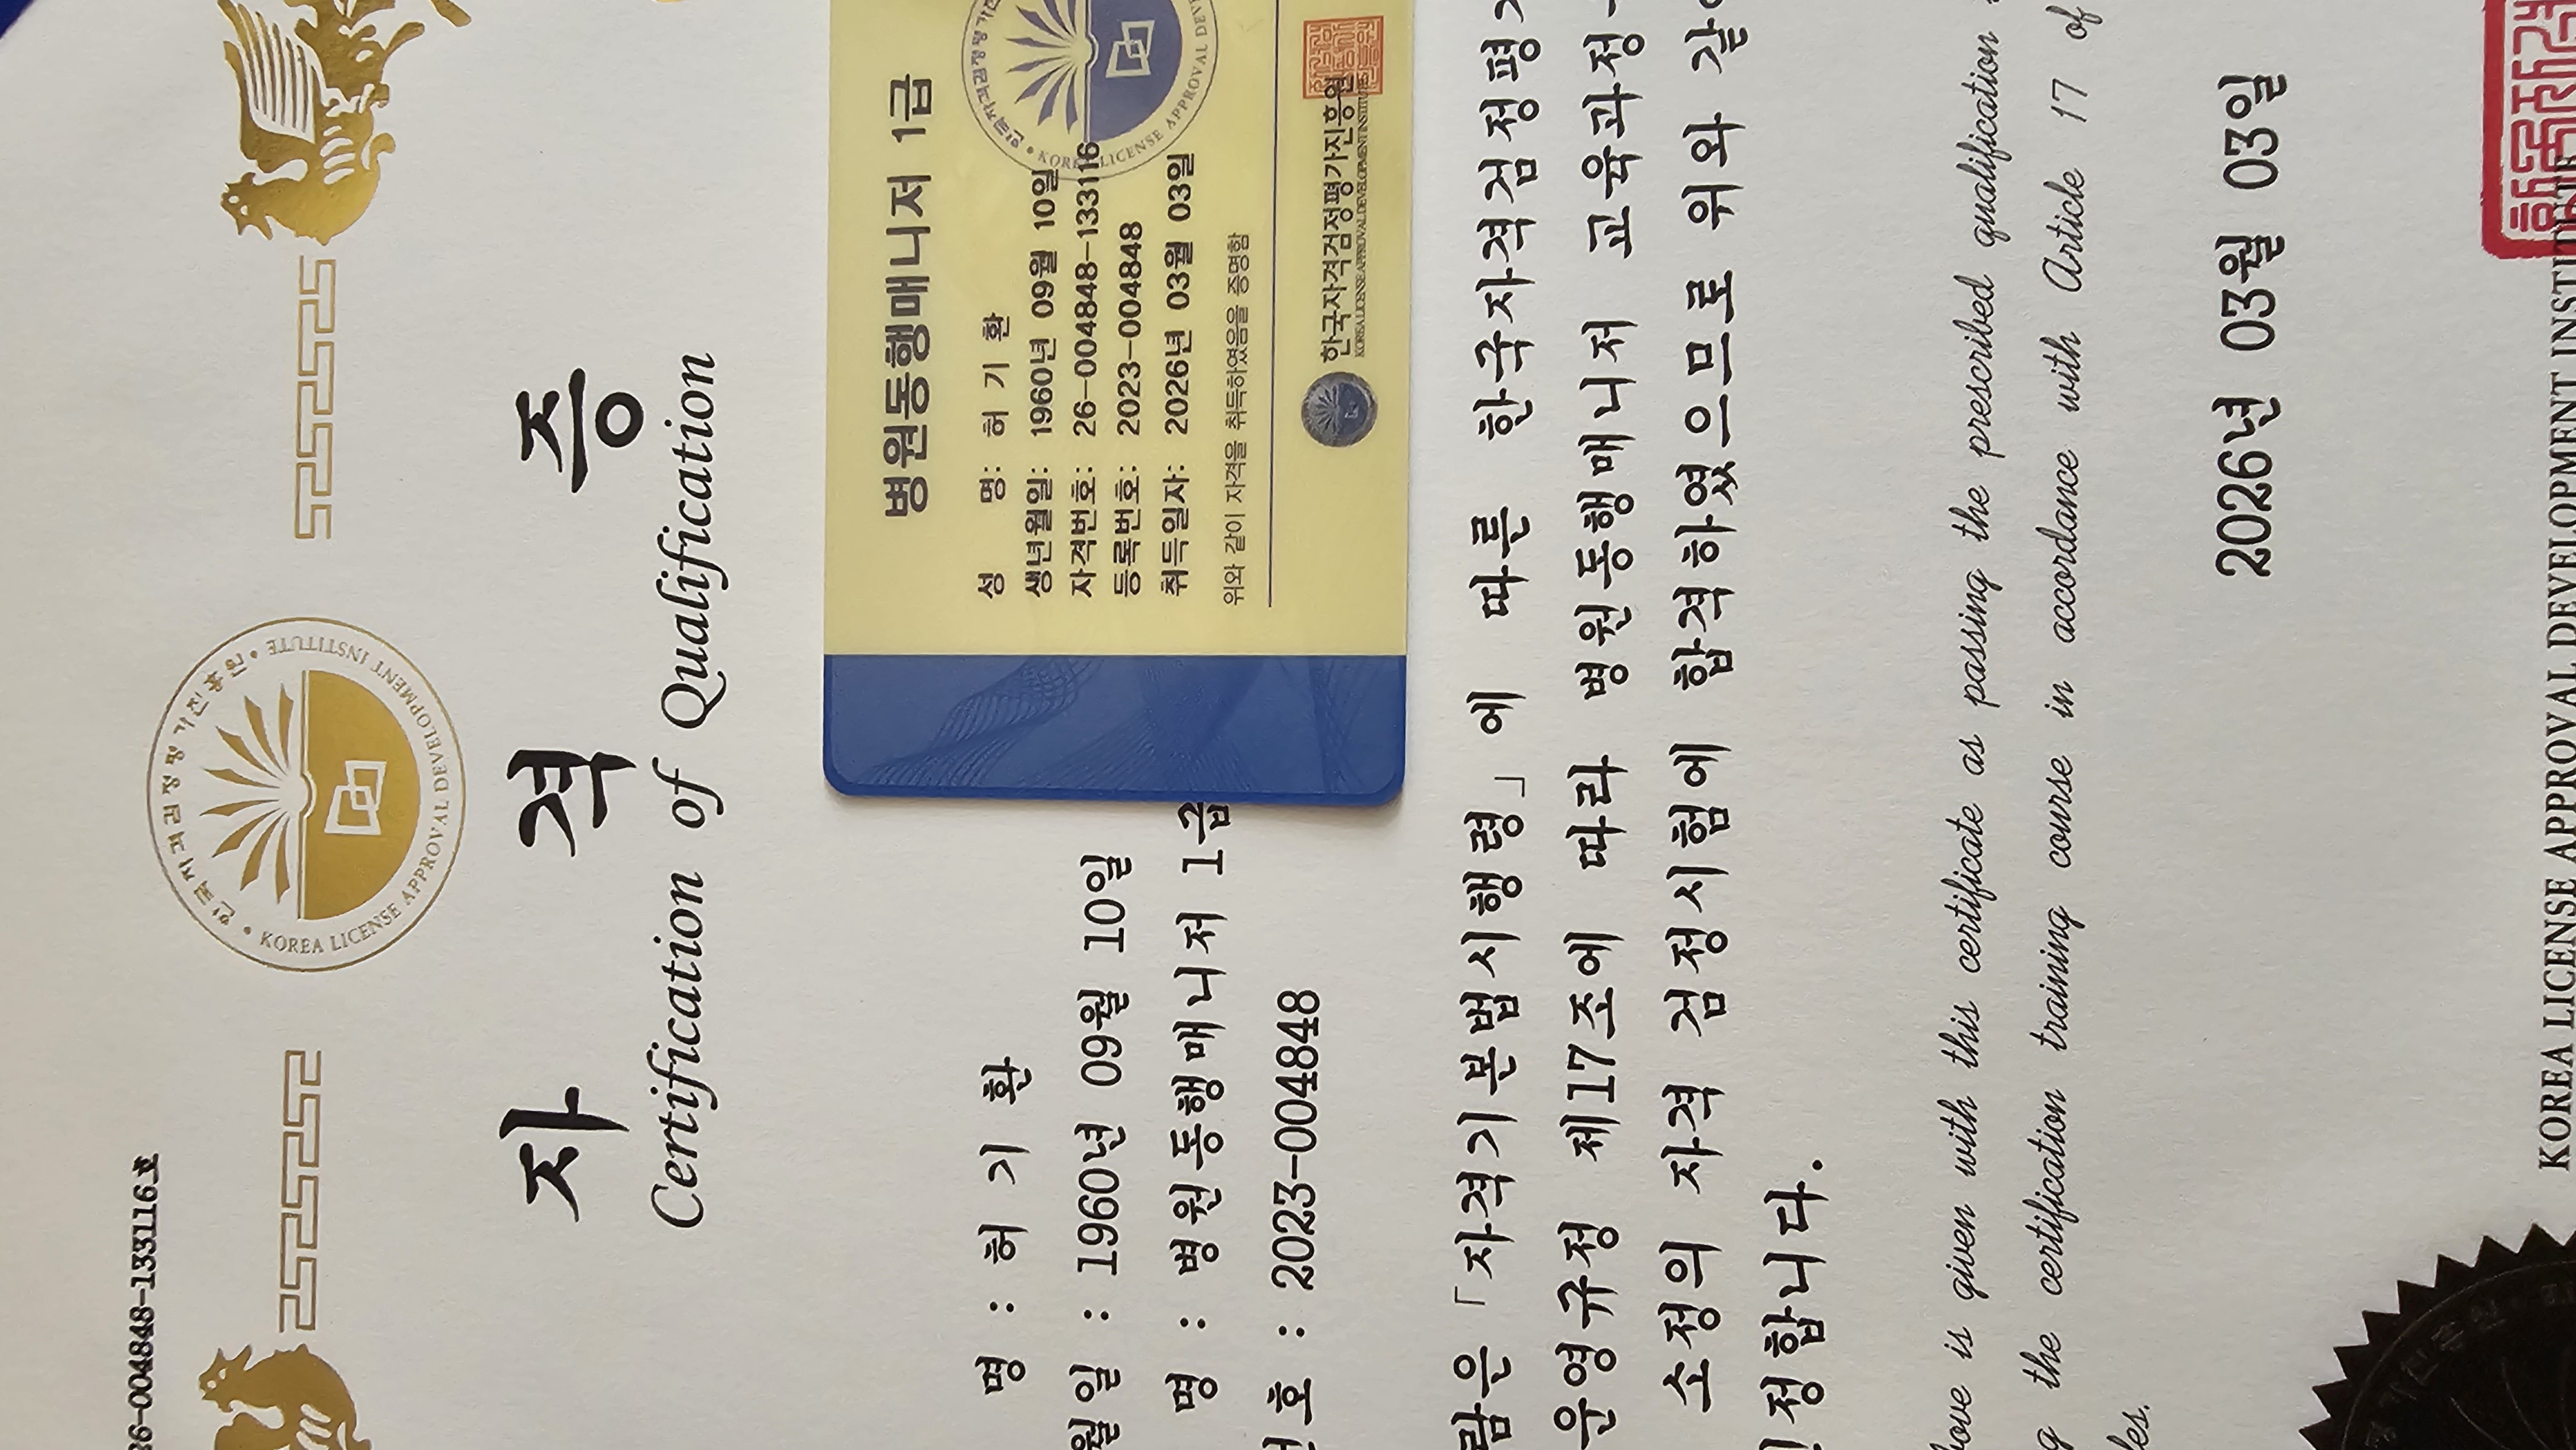 26-00484​8-133116호
한국자격검정평가진흥원
KOREA LICENSE APPROVAL DEVELOPMENT INSTITUTE
자 격 증
Certification of Qualification
명 : 허 기 환
월일 : 1960년 09월 10일
명 : 병원동행매니저 1급
호 : 2023-004848
병원동행매니저 1급
성 명: 허 기 환
생년월일: 1960년 09월 10일
자격번호: 26-004848-133116
등록번호: 2023-004848
취득일자: 2026년 03월 03일
위와 같이 자격을 취득하였음을 증명함
KOREA LICENSE APPROVAL
한국자격검정평가진흥원
KOREA LICENSE APPROVAL DEVELOPMENT INSTITUTE
람은 「자격기본법시행령」에 따른 한국자격검정평
운영규정 제17조에 따라 병원동행매니저 교육과정
소정의 자격 검정시험에 합격하였으므로 위와 같
정합니다.
is given with this certificate as passing the prescribed qualification
the certification training course in accordance with Article 17 of
2026년 03월 03일
KOREA LICENSE APPROVAL DEVELOPMENT INSTITUTE